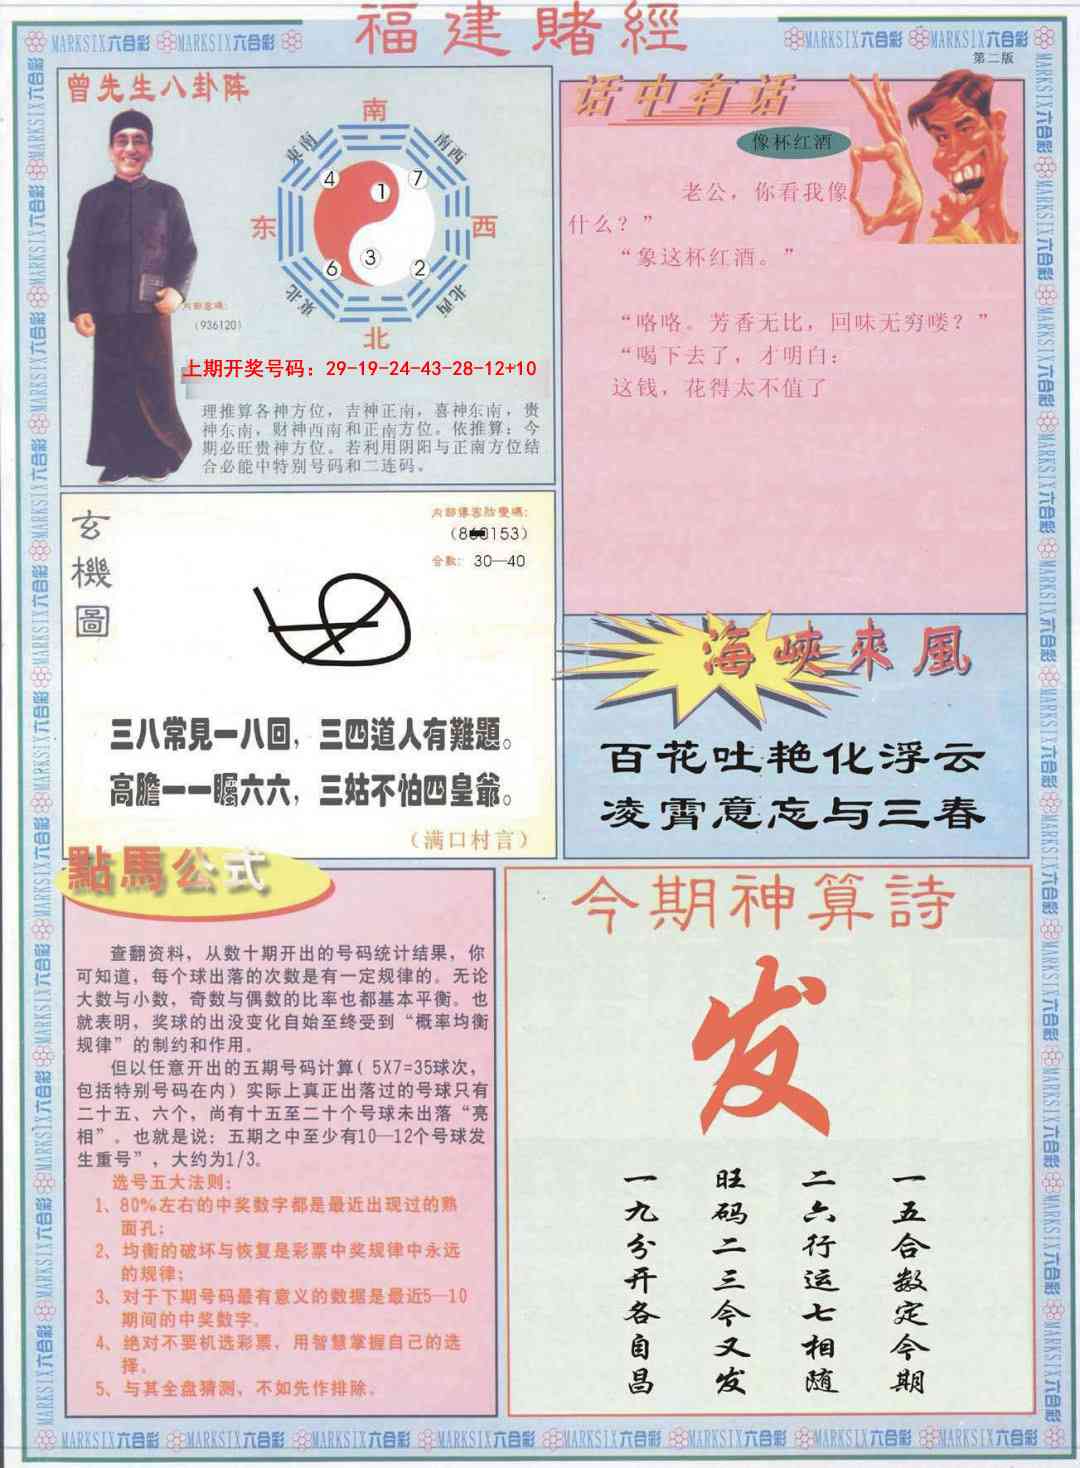 福建賭經
MARKSIX六合彩 MARKSIX六合彩 MARKSIX六合彩 MARKSIX六合彩
第二版
曾先生八卦阵
南
東南
南西
4
1
7
东
西
6
3
2
東北
北西
北
内部密碼:
(936120)
上期开奖号码：29-19-24-43-28-12+10
理推算各神方位，吉神正南，喜神东南，贵
神东南，财神西南和正南方位。依推算：今
期必旺贵神方位。若利用阴阳与正南方位结
合必能中特别号码和二连码。
话中有话
像杯红酒
老公，你看我像
什么？”
“象这杯红酒。”
“咯咯。芳香无比，回味无穷喽？”
“喝下去了，才明白：
这钱，花得太不值了
玄機圖
合數: 30—40
三八常見一八回，三四道人有難題。
高膽一一矚六六，三姑不怕四皇爺。
（满口村言）
海峽來風
百花吐艳化浮云
凌霄意忘与三春
點馬公式
查翻资料，从数十期开出的号码统计结果，你
可知道，每个球出落的次数是有一定规律的。无论
大数与小数，奇数与偶数的比率也都基本平衡。也
就表明，奖球的出没变化自始至终受到“概率均衡
规律”的制约和作用。
但以任意开出的五期号码计算( 5X7=35球次，
包括特别号码在内) 实际上真正出落过的号球只有
二十五、六个，尚有十五至二十个号球未出落“亮
相”。也就是说：五期之中至少有10—12个号球发
生重号”，大约为1/3。
选号五大法则：
1、80%左右的中奖数字都是最近出现过的熟
面孔；
2、均衡的破坏与恢复是彩票中奖规律中永远
的规律；
3、对于下期号码最有意义的数据是最近5—10
期间的中奖数字。
4、绝对不要机选彩票，用智慧掌握自己的选
择。
5、与其全盘猜测，不如先作排除。
今期神算詩
发
一五合数定今期
二六行运七相随
旺码二三今又发
一九分开各自昌
MARKSIX六合彩 MARKSIX六合彩 MARKSIX六合彩 MARKSIX六合彩 MARKSIX六合彩 MARKSIX六合彩 MARKSIX六合彩 MARKSIX六合彩